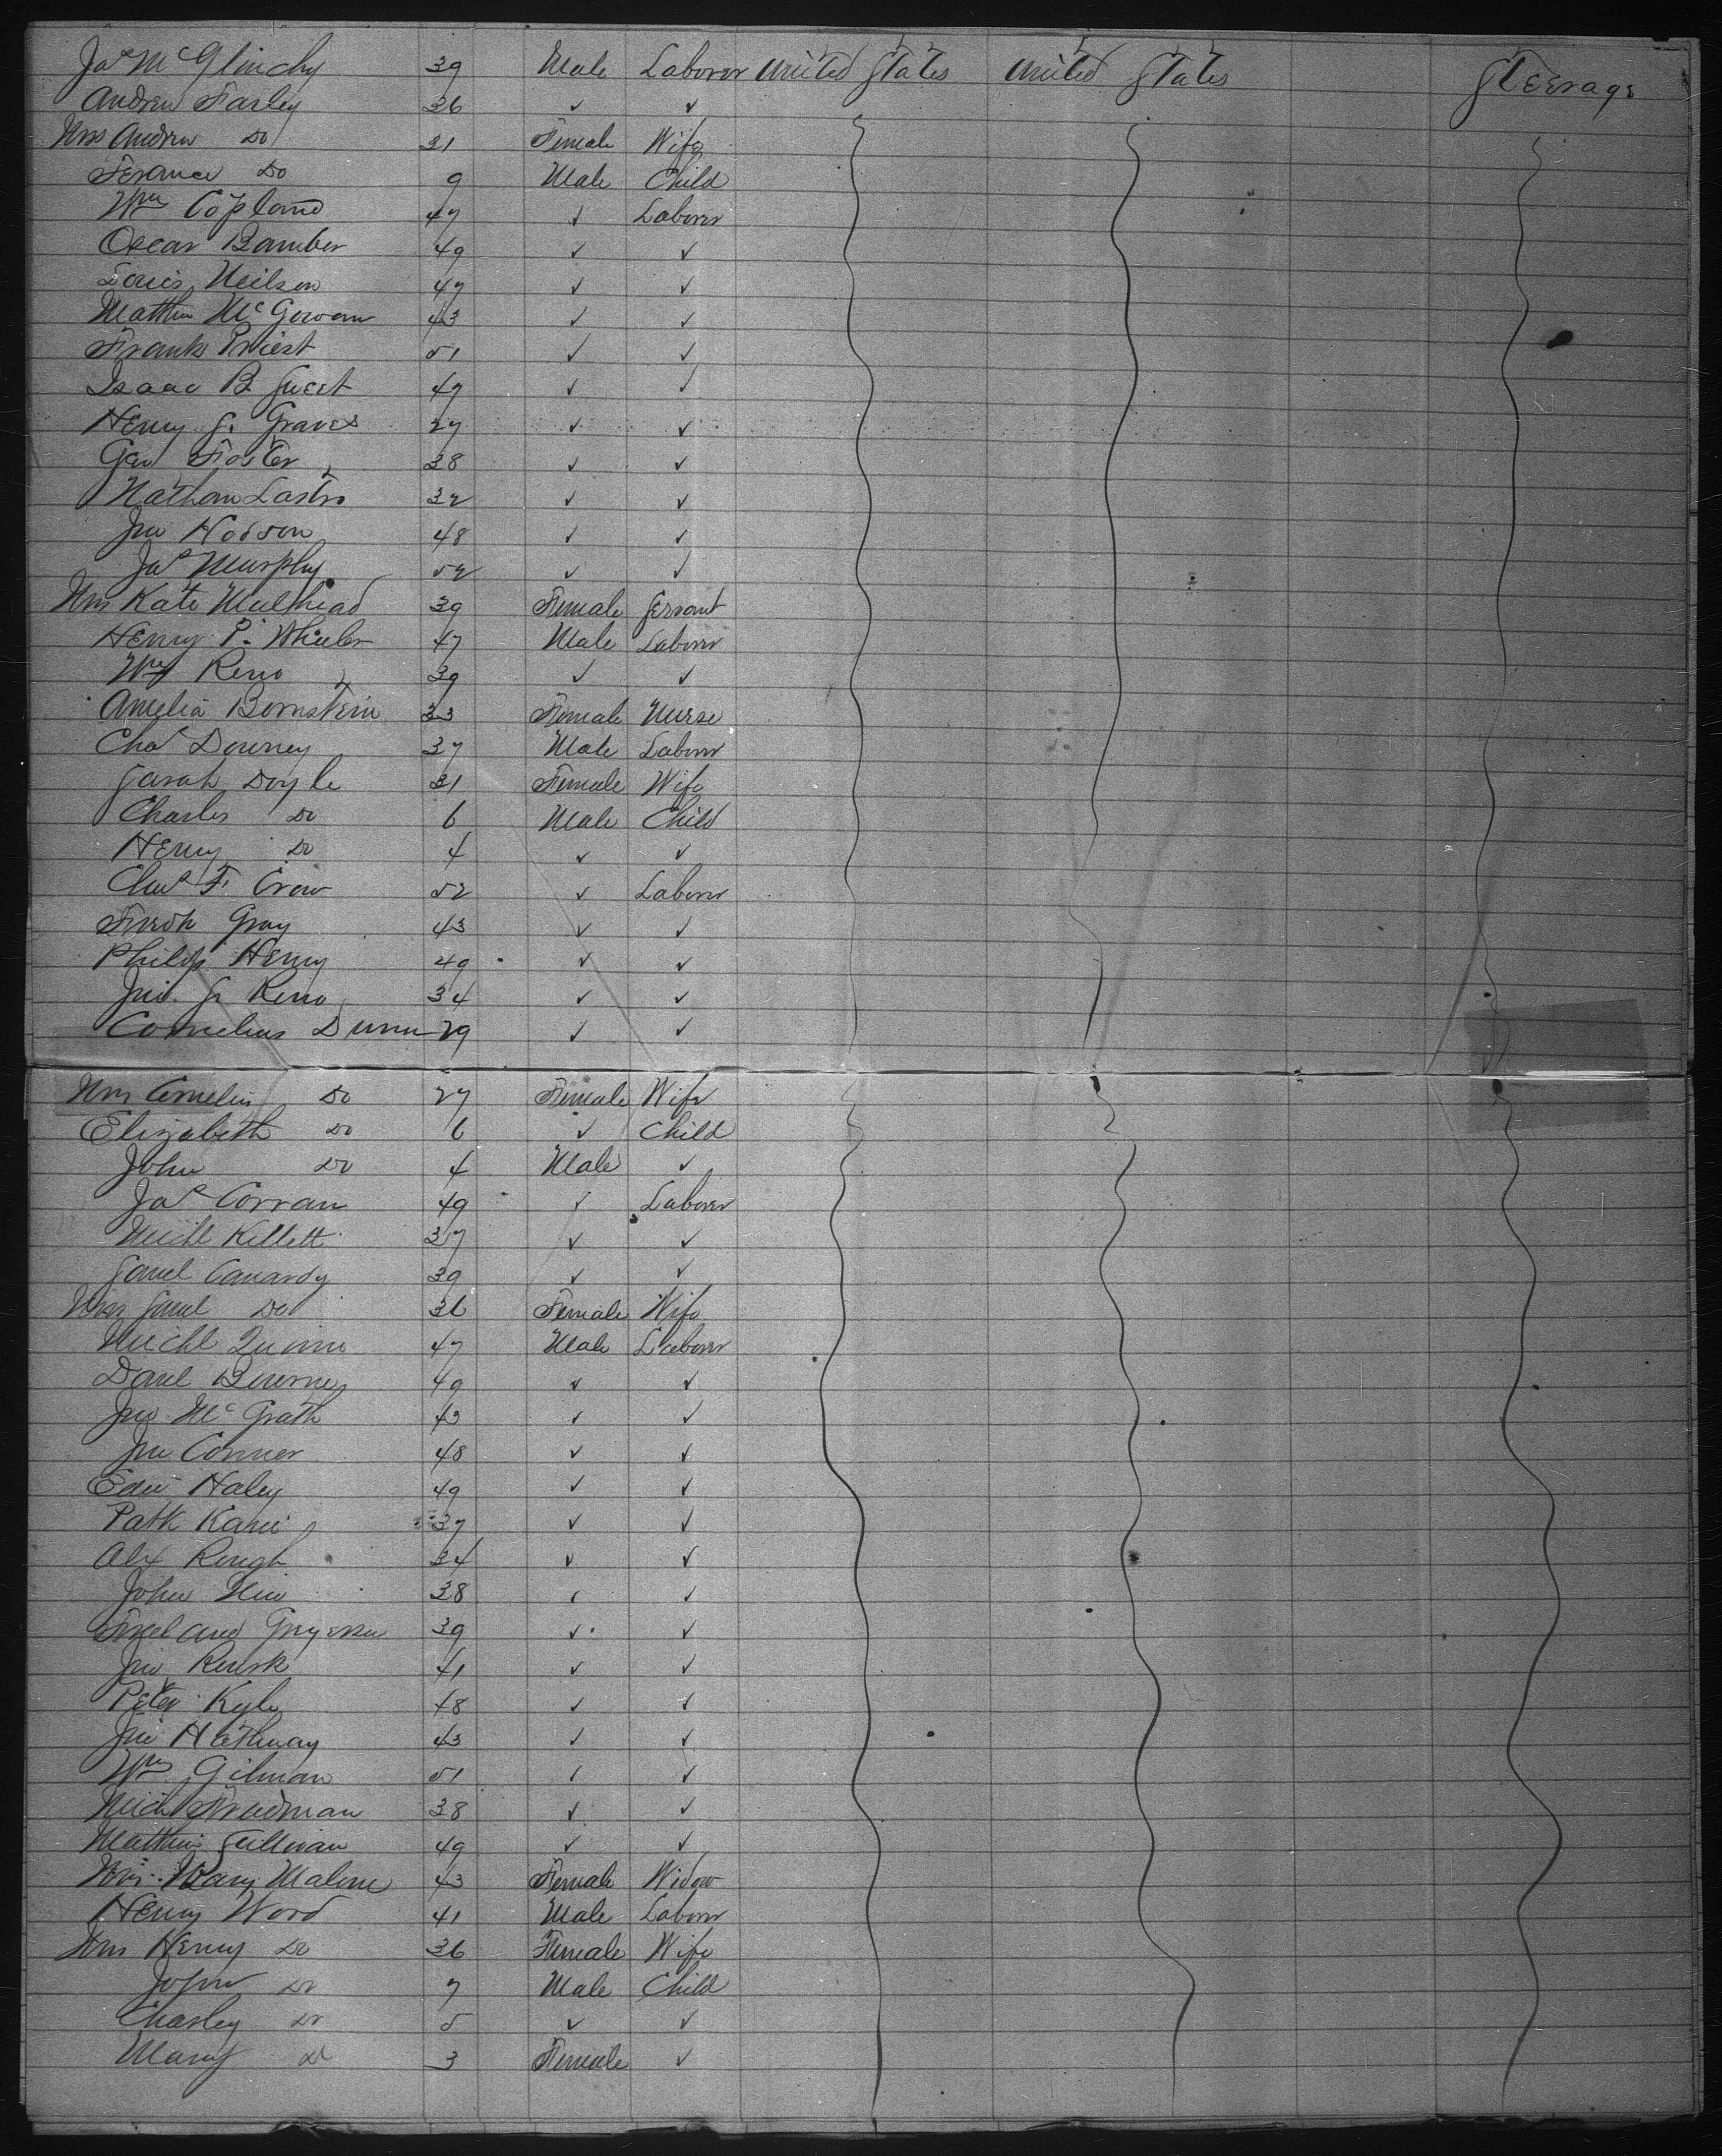 Jas McGlinchy 39 Male Laborer United States United States Steerage
Andrew Farley 36 ✓ ✓
Mrs Andrew Do 31 Female Wife
Do 9 Male Child
Wm Copland 47 ✓ Laborer
Oscar Bamber 49 ✓ ✓
Louis Neilson 47 ✓ ✓
Matthew McGowan 43 ✓ ✓
Frank Priest 51 ✓ ✓
Isaac B. Guest 47 ✓ ✓
Henry G. Graves 27 ✓ ✓
Geo Foster 38 ✓ ✓
Nathan 32 ✓ ✓
Jno Hodson 48 ✓ ✓
Jas Murphy 52 ✓ ✓
Mrs Kate Mulhead 39 Female Servant
Henry P. Wheeler 47 Male Laborer
Wm Reno 39 ✓ ✓
Amelia Bornstein 33 Female Nurse
Chas Downey 37 Male Laborer
Sarah Doyle 31 Female Wife
Charles Do 6 Male Child
Henry Do 4 ✓ ✓
Chas F. Crow 52 ✓ Laborer
Gray 43 ✓ ✓
Philip Henry 49 ✓ ✓
Jno. G. Reno 34 ✓ ✓
Cornelius Dunn 29 ✓ ✓
Mrs Cornelius Do 27 Female Wife
Elizabeth Do 6 ✓ Child
John Do 4 Male ✓
Jas Corran 49 ✓ Laborer
Michl Killett 37 ✓ ✓
Saml Canardy 39 ✓ ✓
Mrs Saml Do 36 Female Wife
Michl Quinn 47 Male Laborer
Danl Bourne 49 ✓ ✓
Jno McGrath 43 ✓ ✓
Jno Connor 48 ✓ ✓
Edw Haley 49 ✓ ✓
Patk Kane 37 ✓ ✓
Alex Rough 34 ✓ ✓
John 38 ✓ ✓
Freeland 39 ✓ ✓
Jno 41 ✓ ✓
Peter Kyle 48 ✓ ✓
Jno Hathway 43 ✓ ✓
Wm Gilman 51 ✓ ✓
Mich Freedman 38 ✓ ✓
Matthew Sullivan 49 ✓ ✓
Mrs. Mary Malone 43 Female Widow
Henry Word 41 Male Laborer
Mrs Henry Do 36 Female Wife
John Do 7 Male Child
Charley Do 5 ✓ ✓
Mary Do 3 Female ✓